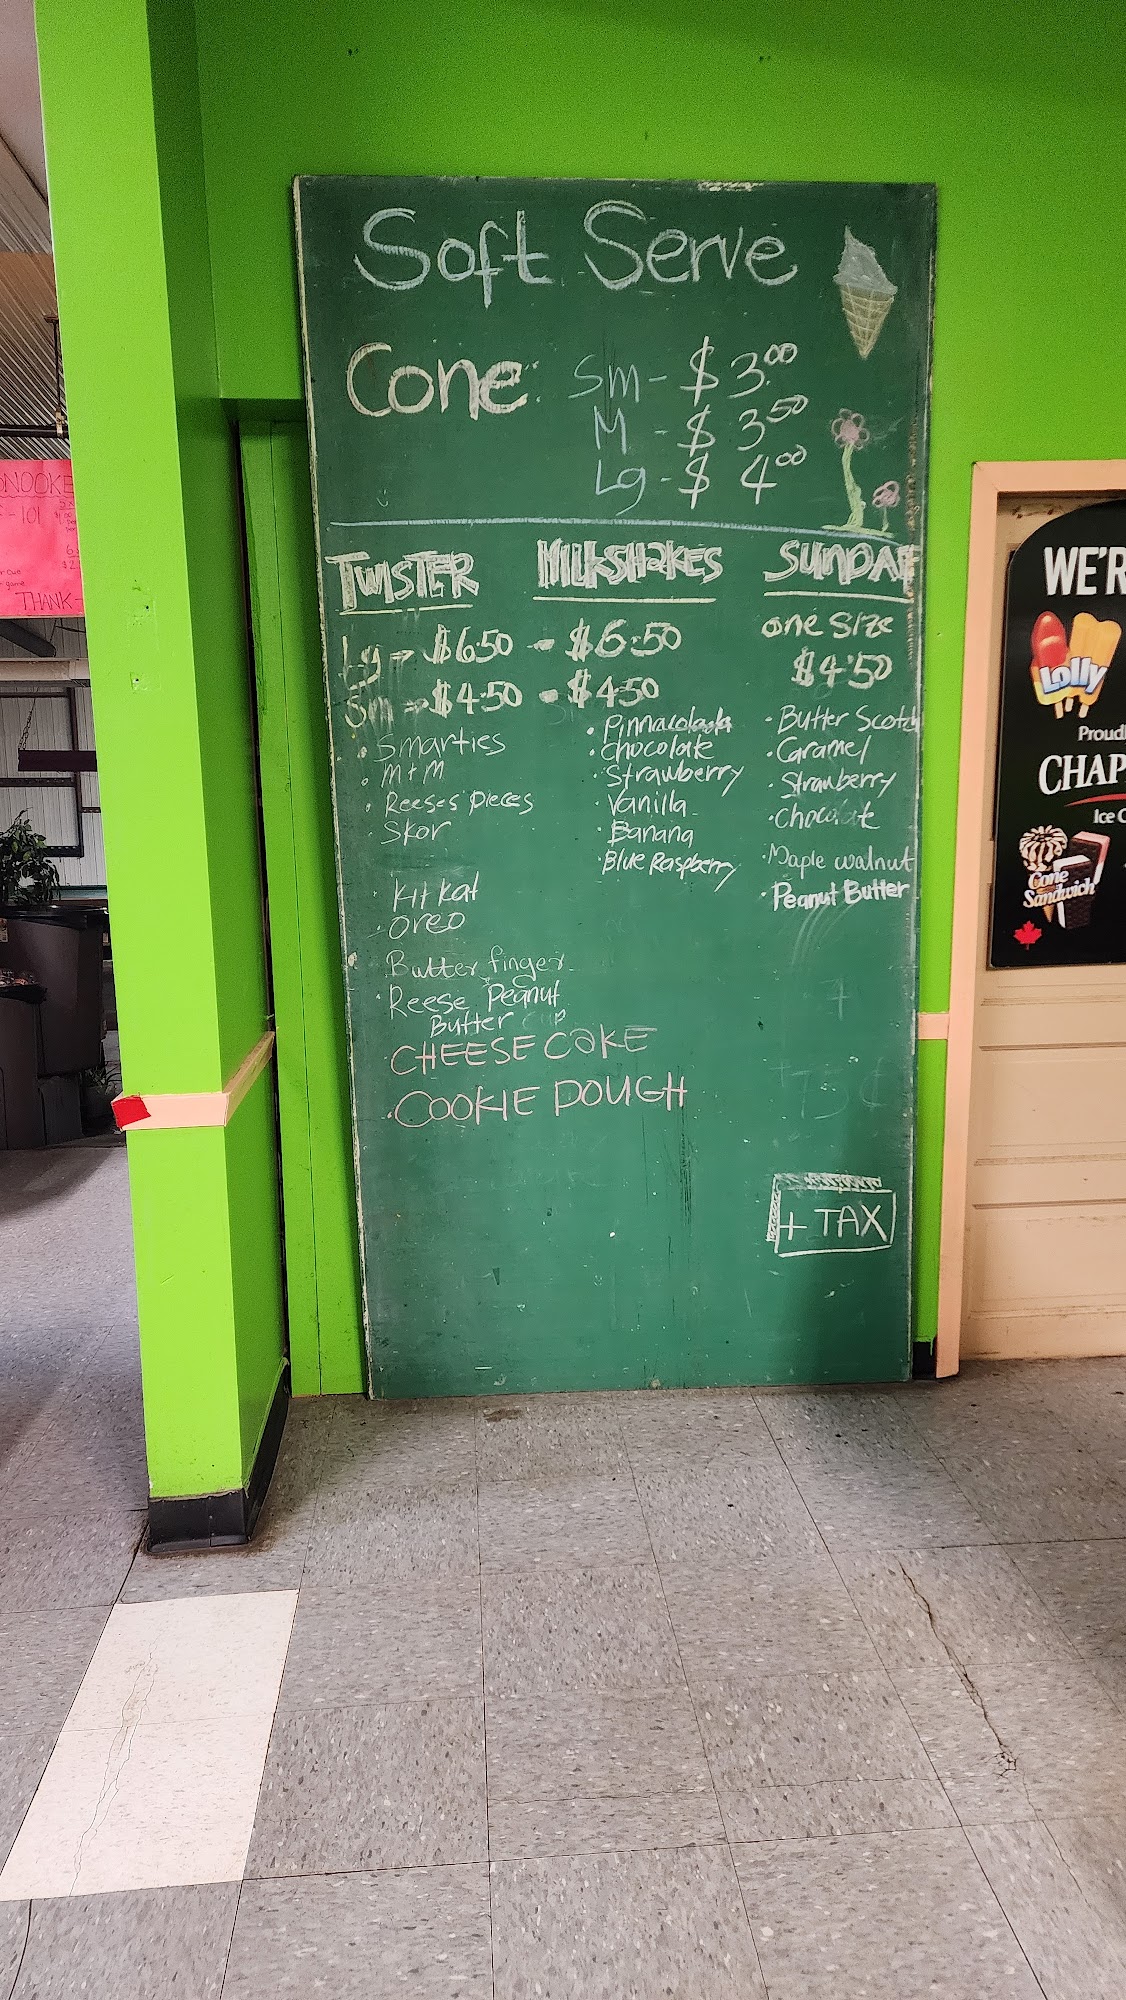 Soft Serve
Cone: Sm - $3.00
M - $3.50
Lg - $4.00
TWISTER
Lg - $6.50
Sm - $4.50
• Smarties
• M+M
• Reeses pieces
• Skor
Kit Kat
• Oreo
Butter finger
• Reese Peanut
Butter cup
CHEESE CAKE
• COOKIE DOUGH
MILKSHAKES
- $6.50
- $4.50
• Pinnacolada
• Chocolate
• Strawberry
• Vanilla
• Banana
• Blue Raspberry
SUNDAE
one size
$4.50
• Butter Scotch
• Caramel
• Strawberry
• Chocolate
• Maple walnut
• Peanut Butter
+ TAX
WE'R
Lolly
Proudl
CHAP
Ice C
Cone
Sandwich
THANK-